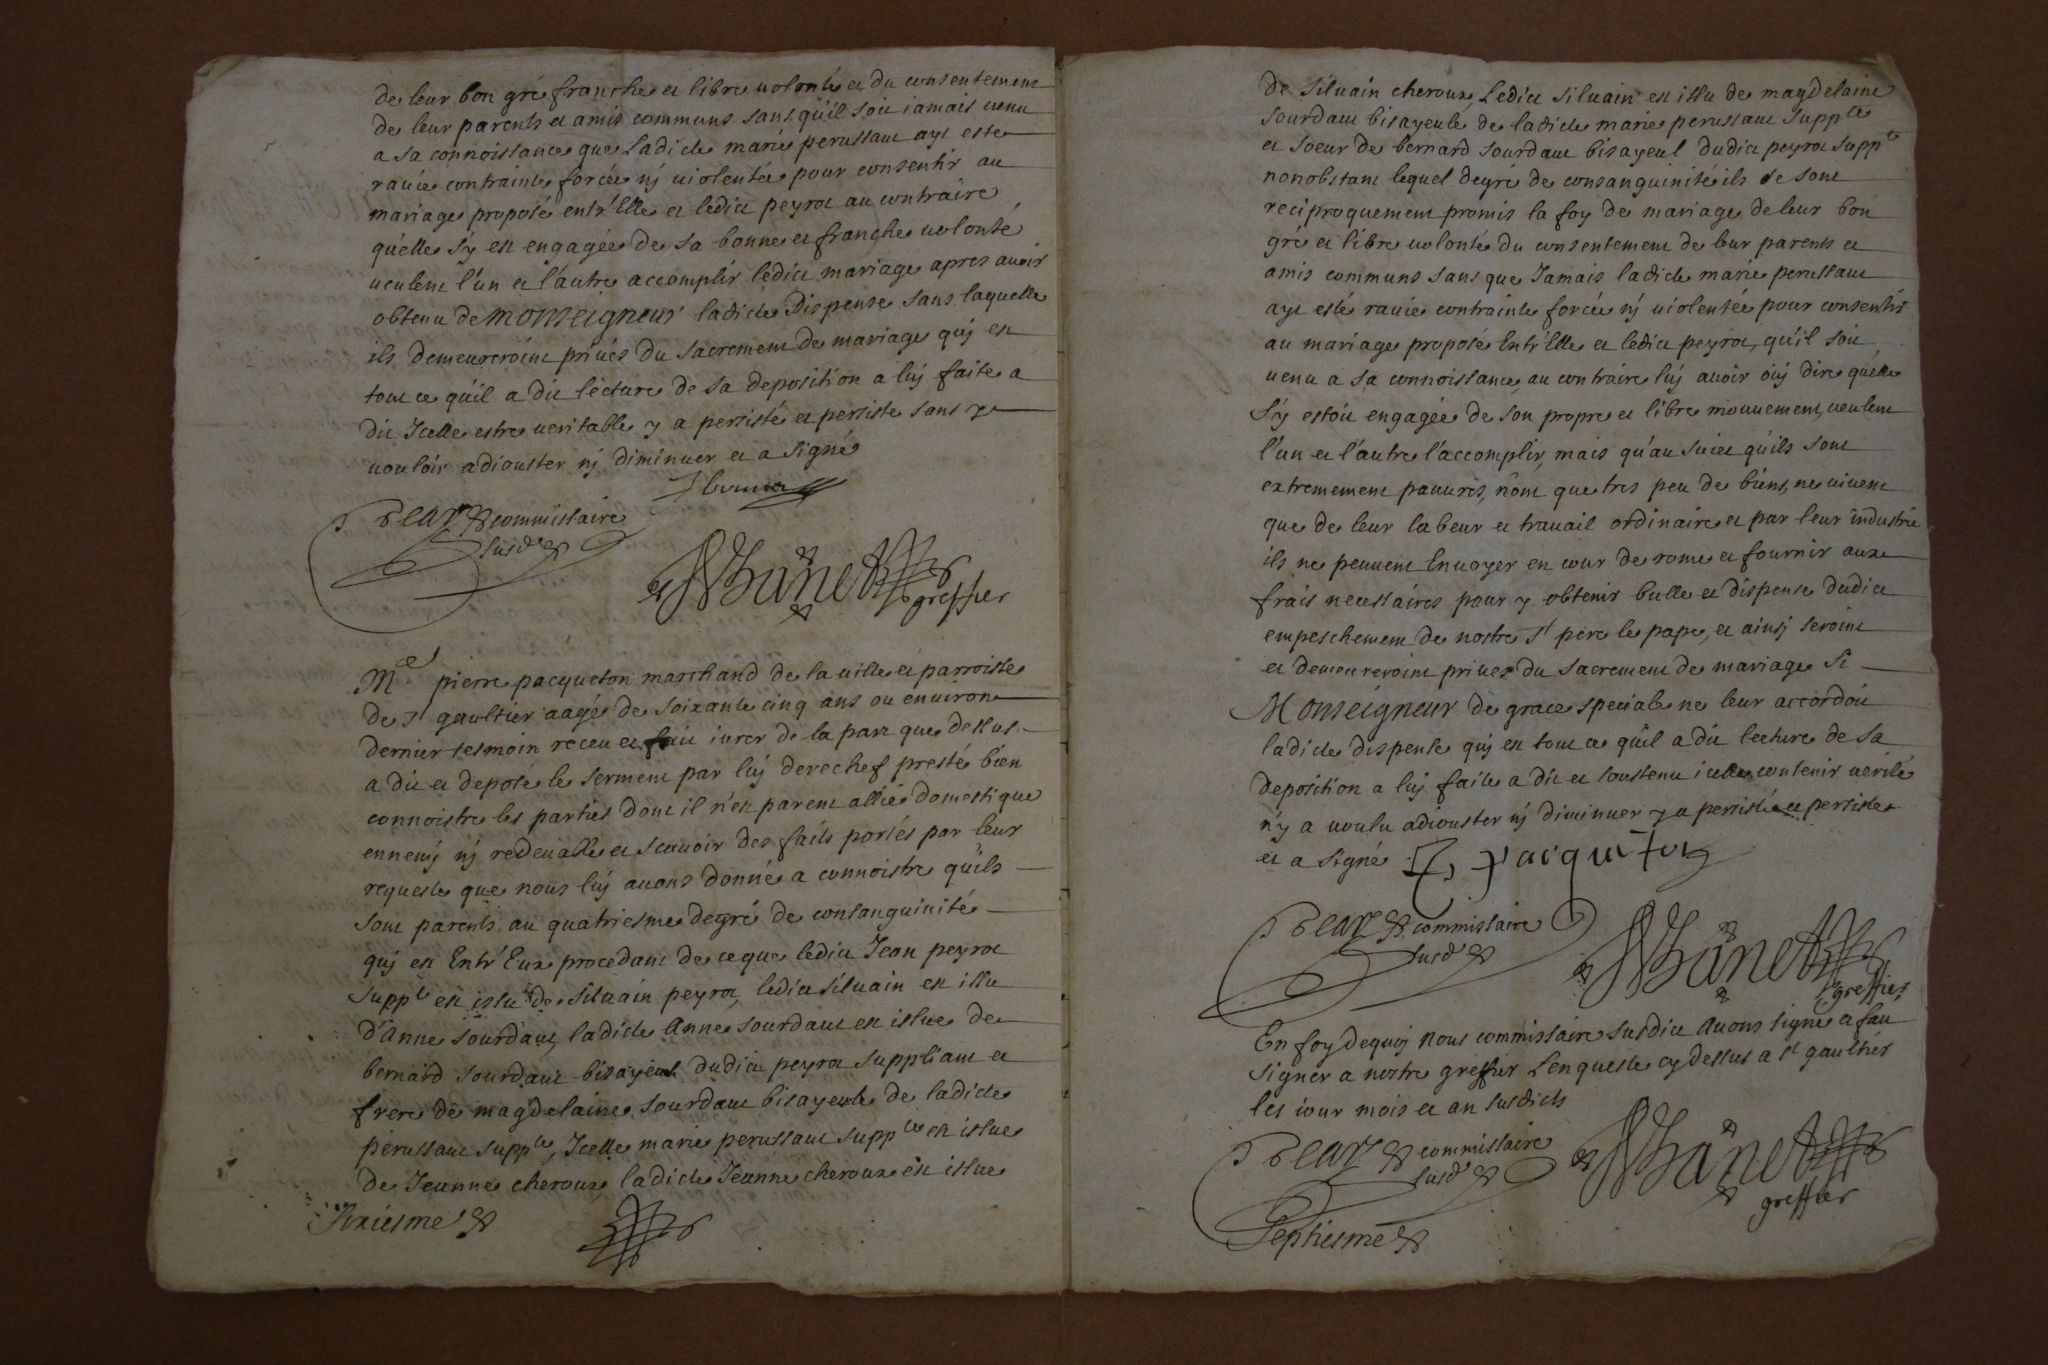 de leur bon gré franche et libre volonté et du consentement
de leur parents et amis communs sans qu'il soit iamais venu
a sa connoissance que Ladicte marie perussaut ayt esté
ravie contrainte forcée nj violentée pour consentir au
mariage proposé entr'Elle et ledict peyrot au contraire
qu'elle s'y est engagée de sa bonne et franche volonté
veulent l'un et l'autre accomplir ledict mariage apres avoir
obtenu de Monseigneur ladicte Dispense sans laquelle
ils demeureroint privés du sacrement de mariage quj est
tout ce qu'il a dit lecture de sa deposition a luj faite a
dit Jcelle estre veritable y a persisté et persiste sans y
vouloir adiouster nj diminuer et a signé
commissaire
susdt
greffier
Me pierre pacqueton marchand de la ville et parroisse
de st gaultier aagé de soixante cinq ans ou environ
dernier tesmoin receu et fait iurer de la part que dessus
a dit et deposé le serment par luj derechef presté bien
connoistre les parties dont il n'est parent allié domestique
ennemj nj redevable et scavoir des faits portés par leur
requeste que nous luj avons donné a connoistre qu'ils
sont parents au quatriesme degré de consanguinité
quj est Entr'Eux procedant de ce que ledict Jean peyrot
suppt est issu de silvain peyrot, ledict silvain est issu
d'Anne sourdaut, ladicte Anne sourdaut est issue de
bernard sourdaut bisayeul dudict peyrot suppliant et
frere de magdelaine sourdaut bisayeule de ladicte
perussaut supplte, Jcelle marie perussaut supplte est issue
de Jeanne cheroux, ladicte Jeanne cheroux est issue
Sixiesme
de silvain cheroux Ledict silvain est issu de magdelaine
sourdaut bisayeule de ladicte marie perussaut supplte
et soeur de bernard sourdaut bisayeul dudict peyrot supplt
nonobstant lequel degré de consanguinité ils se sont
reciproquement promis la foy de mariage de leur bon
gré et libre volonté du consentement de leur parents et
amis communs sans que Jamais ladicte marie perussaut
ayt esté ravie contrainte forcée nj violentée pour consentir
au mariage proposé Entr'Elle et ledict peyrot, qu'il soit
venu a sa connoissance, au contraire luj avoir ouj dire qu'elle
s'y estoit engagée de son propre et libre mouvement, veulent
l'un et l'autre l'accomplir, mais qu'au suiet qu'ils sont
extremement pauvres, n'ont que tres peu de biens, ne vivent
que de leur labeur et travail ordinaire et par leur industrie
ils ne peuvent Envoyer en cour de rome et fournir aux
frais necessaires pour y obtenir bulle et dispense dudict
empeschement de nostre st pere le pape, et ainsj seroint
et demeureroint privez du sacrement de mariage si
Monseigneur de grace speciale ne leur accordoit
ladicte dispense quj est tout ce qu'il a dit lecture de sa
deposition a luj faite a dit et soustenu icelle contenir verité
n'y a voulu adiouster nj diminuer y a persisté et persiste
et a signé pacqueton
commissaire
susdt
greffier
En foy dequoj Nous commissaire susdict Avons signé et fait
signer a nostre greffier L'enqueste cy dessus a st gaultier
les iour mois et an susdicts
commissaire
susdt
greffier
Septiesme